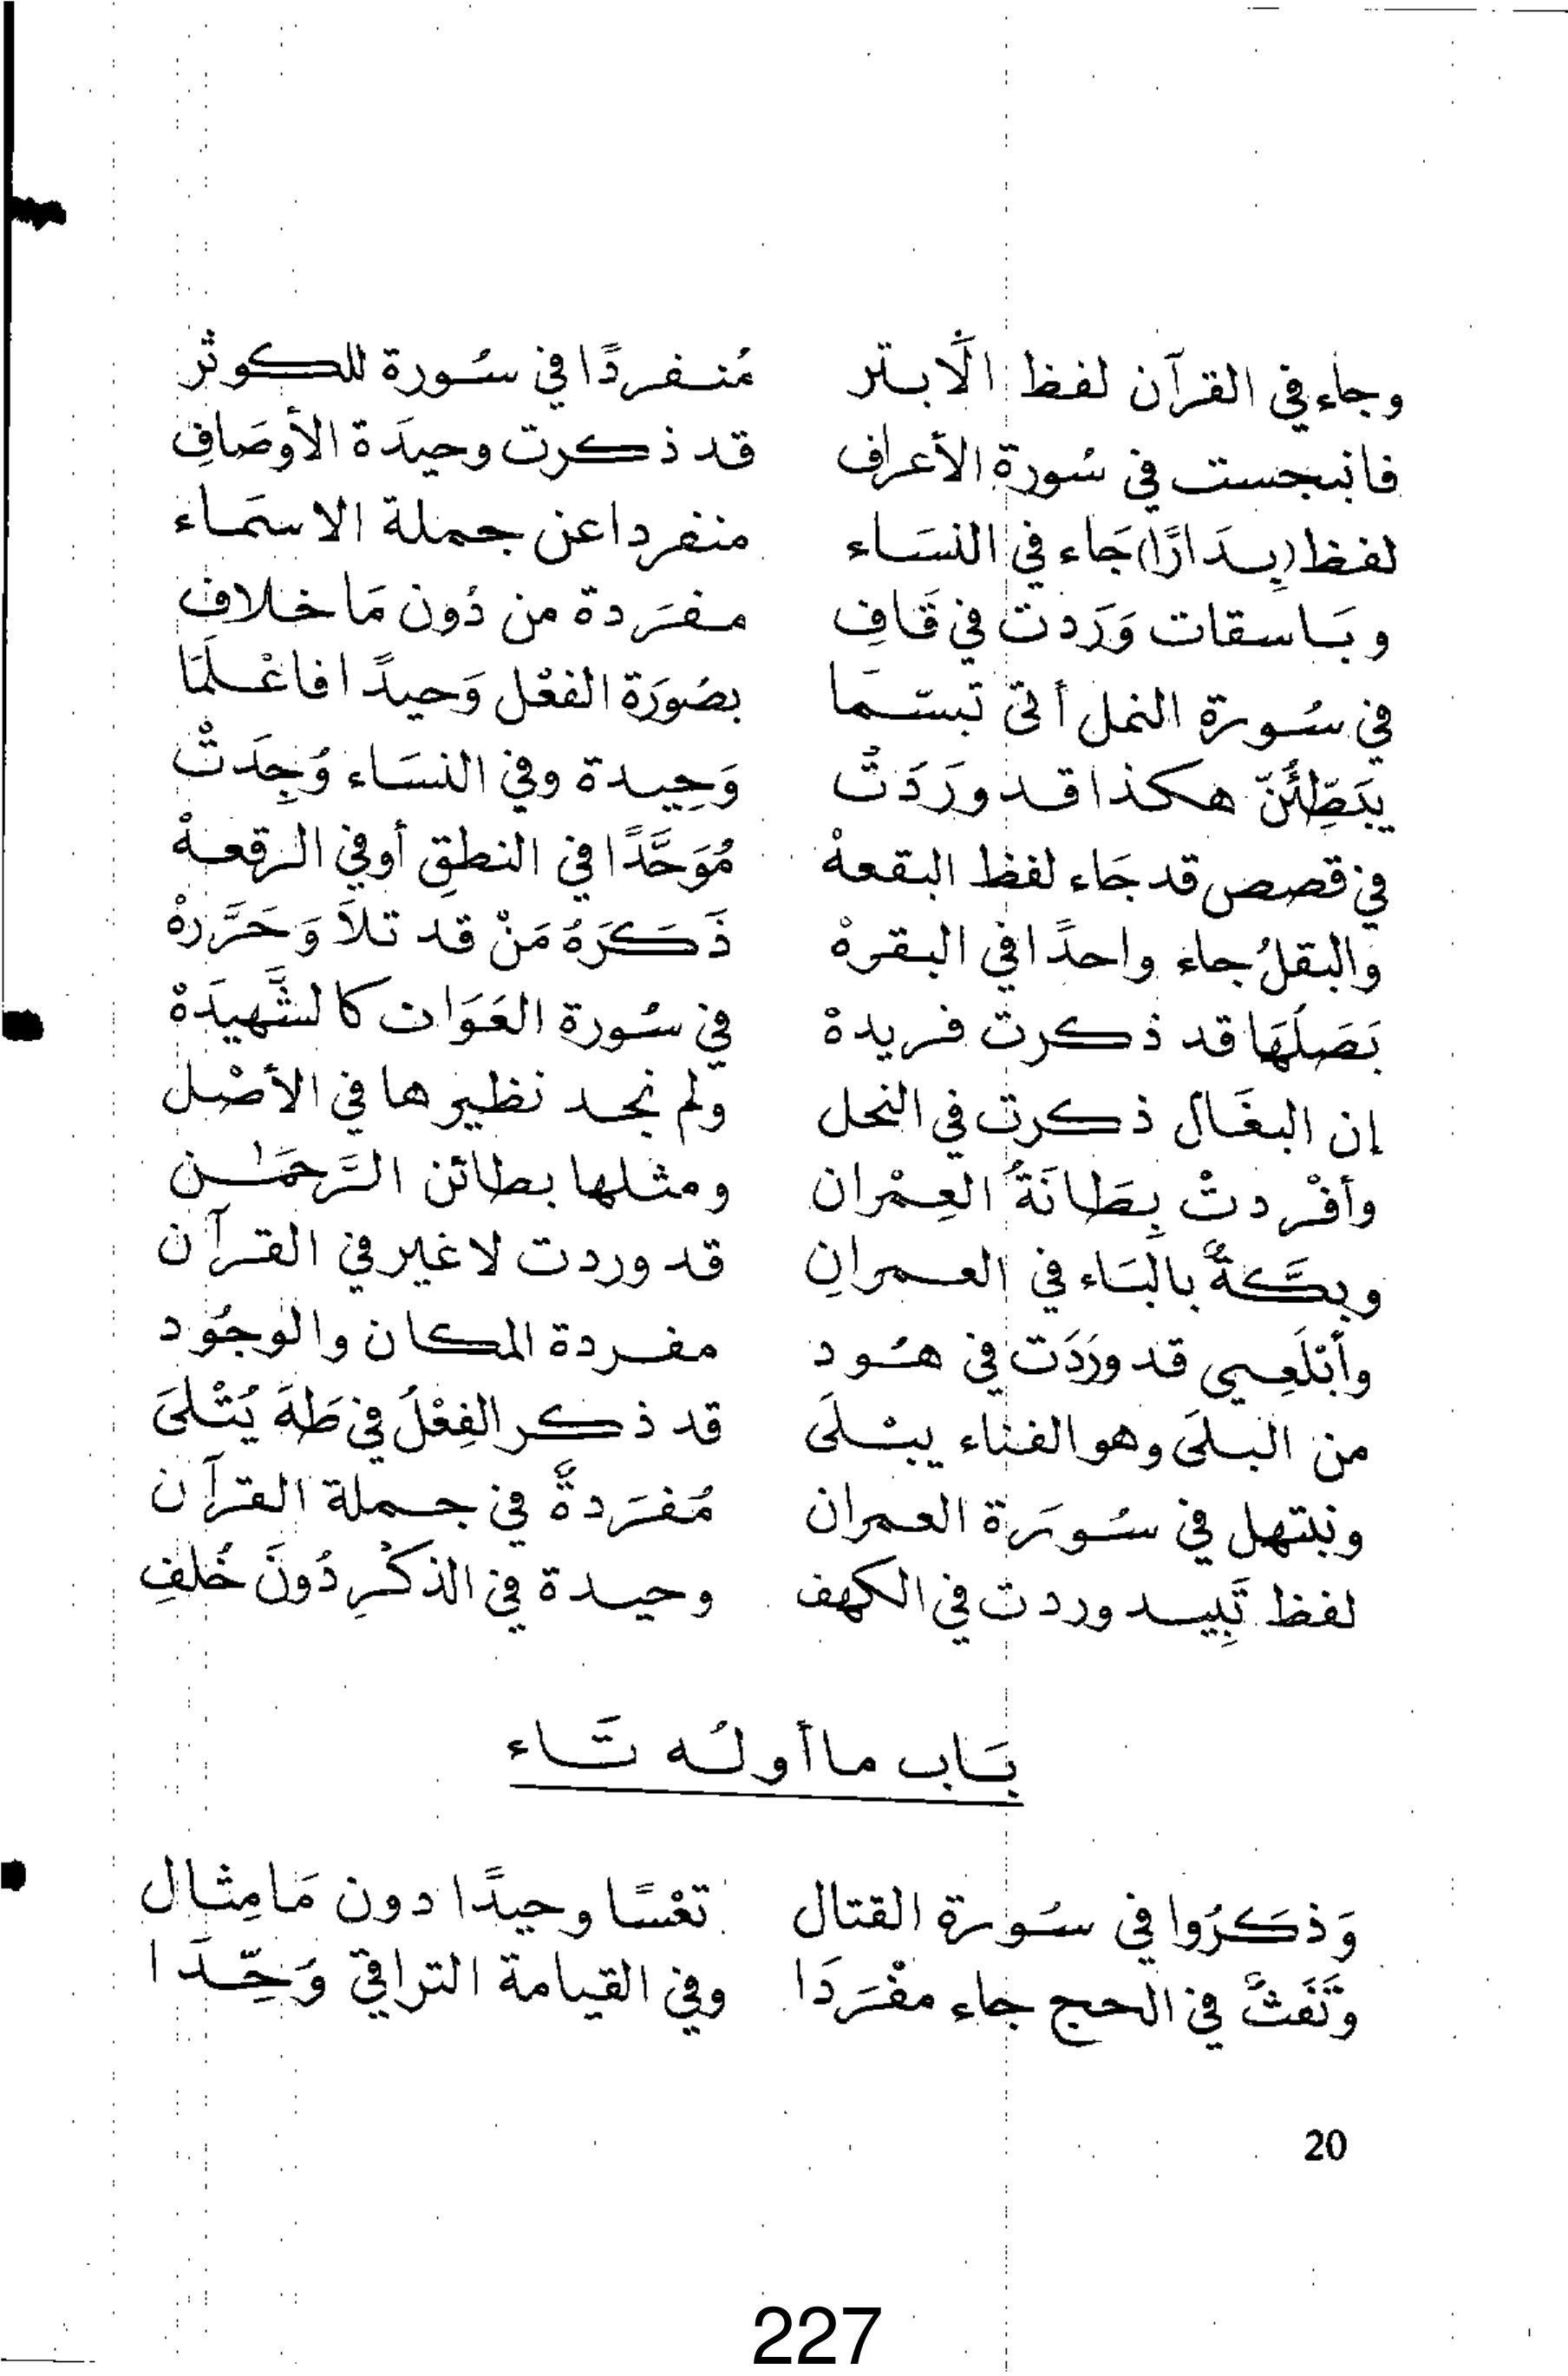 وجاء في القرآن لفظ الَابتر مُنفردًا في سُورة للكوثر
فانبجست في سُورة الأعراف قد ذكرت وحيدَة الأوصَافِ
لفظ (بِدَارًا) جَاء في النسَاء منفردا عن جملة الاسمَاء
وبَاسقات وَرَدتْ في قَافِ مفرَدة من دُون مَا خلاف
في سُورة النمل أتى تبسّمَا بصُورَة الفعْل وَحيدًا فاعْلَمَا
يبَطِّئَنّ هكذا قد ورَدَتْ وَحِيدة وفي النسَاء وُجِدَتْ
في قصص قد جَاء لفظ البقعهْ مُوَحَّدًا في النطقِ أو في الرقعهْ
والبقلُ جاء واحدًا في البقرهْ ذَكَرَهُ مَنْ قد تلاَ وَحَرَّرهْ
بَصَلُهَا قد ذكرتْ فريدهْ في سُورة العَوَان كالشَّهيدَهْ
إن البغَال ذكرتْ في النحل ولم نجد نظيرها في الأصْل
وأفْردتْ بِطَانَةُ العِمْران ومثلها بطائن الرَّحمَٰن
وبكَّةٌ بالبَاء في العمرانِ قد وردت لا غير في القرآن
وأبْلَعِي قد ورَدَت في هُود مفردة المكان والوجُود
من البلَى وهو الفناء يبْلَى قد ذكر الفِعْلُ في طَهَ يُتْلَى
ونبتهل في سُورَة العمران مُفرَدةٌ في جملة القرآن
لفظ تَبِيد وردت في الكهف وحيدة في الذكْرِ دُونَ خُلفِ
بَاب ما أولُه تَاء
وَذكَرُوا في سُورة القتال تعْسًا وحيدًا دون مَا مِثال
وتَفَثٌ في الحج جاء مفْرَدَا وفي القيامة التراقي وَحِّدَا
20
227